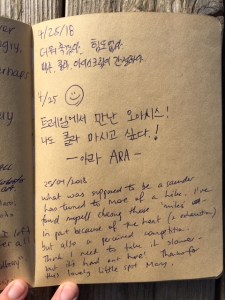 4/25/18
더워 죽겠다. 힘도없다.
맥주, 콜라, 아이스크림이 간절하다.
4/25
트레일에서 만난 오아시스!
나도 콜라 마시고 싶다.!
- 아라 ARA -
25/04/2018
What was supposed to be a saunter
has turned to more of a hike. I've
found myself chasing those 'miles'
In part because of the heat (& exhaustion)
but also a perceived competition.
Think I need to take it slower -
but it's hard out here! Thanks for
this lovely little spot Mary.